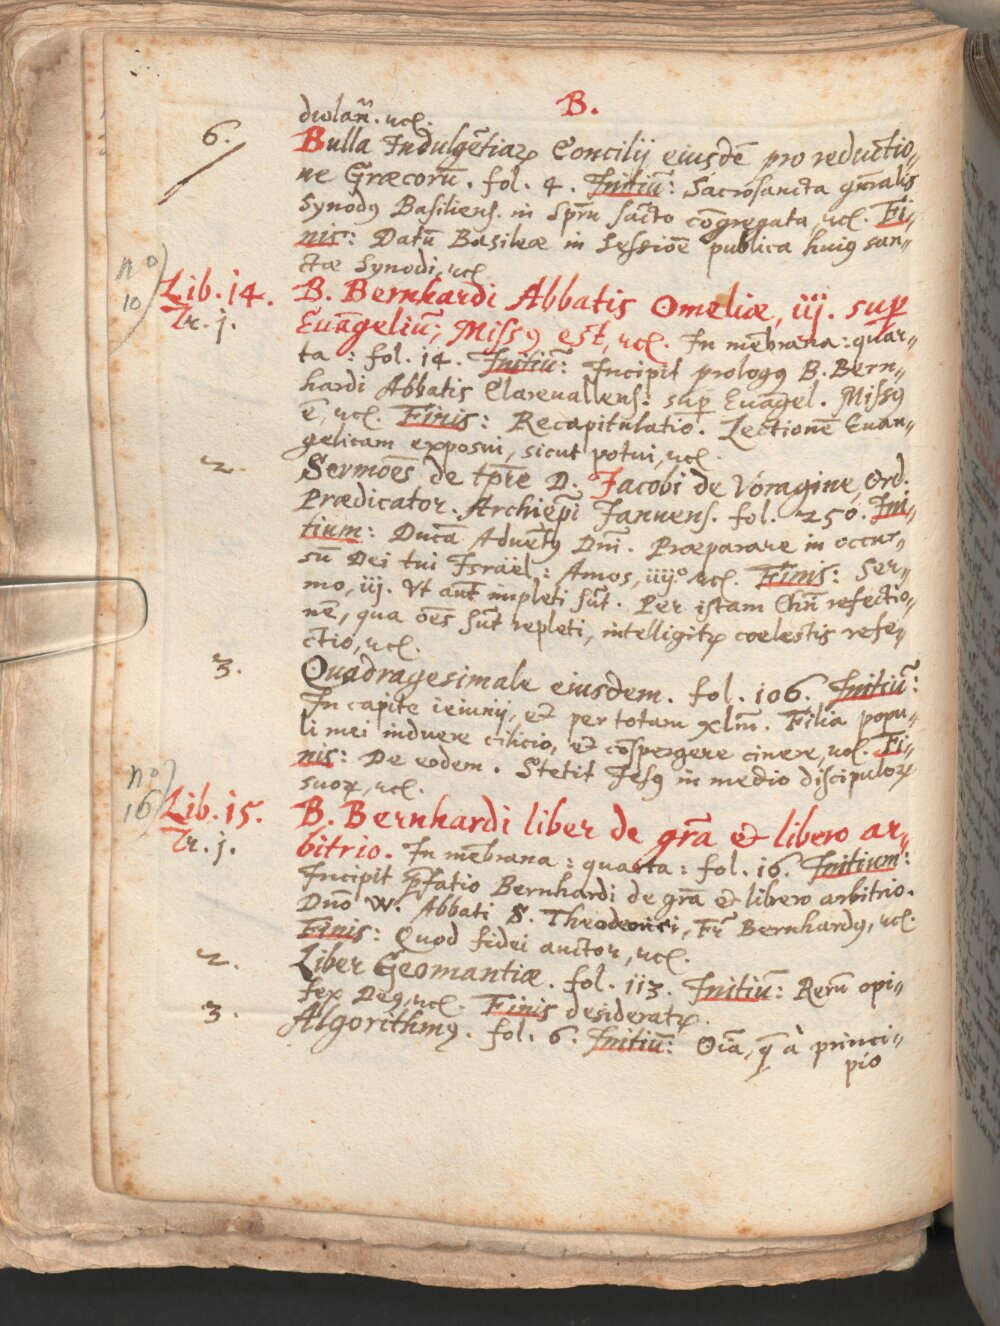 B.
diolan̄. ꝛcl.
6. Bulla Indulgētiaꝝ Concilij eiusdē pro reductio„
ne Græcorū. fol. 4. Initiū: Sacrosancta gn̄ralis
Synodꝰ Basiliens. in Spr̄u sācto cōgregata ꝛcl. Fi„
nis: Datū Basileæ in Sessiōe publica huiꝰ san„
ctæ Synodi, ꝛcl.
nº 10)
Lib. 14. B. Bernhardi Abbatis Omeliæ, iij. suꝑ
Tr. j. Euāgeliū; Missꝰ est, ꝛcl. In mēbrana: quar„
ta: fol. 14. Initiū: Incipit prologꝰ B. Bern„
hardi Abbatis Clareuallens: suꝑ Euāgel. Missꝰ
ē, ꝛcl. Finis: Recapitulatio. Lectionē Euan„
gelicam exposui, sicut potui, ꝛcl.
2. Sermōes de tp̄re D. Jacobi de Voragine, Ord.
Prædicator. Archiep̄i Januens. fol. 250. Ini„
tium: Ducā Aduētꝰ Dn̄i. Præparare in occur„
sū Dei tui Israël: Amos, iiijº ꝛcl. Finis: Ser„
mo, iij. Vt aūt impleti sūt. Per istam Chr̄i refectio„
nē, qua oēs sūt repleti, intelligitꝝ coelestis refe„
ctio, ꝛcl.
3. Quadragesimale eiusdem. fol. 106. Initiū:
In capite ieiunij, et per totam xlm̄. Filia popu„
li mei induere cilicio, et cōspergere cinere, ꝛcl. Fi„
nis: De eodem. Stetit Jesꝰ in medio discipuloꝝ
suoꝝ, ꝛcl.
nº 16)
Lib. 15. B. Bernhardi liber de gr̄a et libero ar„
Tr. j. bitrio. In mēbrana: quarta: fol. 16. Initium:
Incipit p̄fatio Bernhardi de gr̄a et libero arbitrio.
Dn̄o W. Abbati S. Theodorici, Fr̄ Bernhardꝰ, ꝛcl.
Finis: Quod fidei auctor, ꝛcl.
2. Liber Geomantiæ. fol. 113. Initiū: Rerū opi„
fex Deꝰ, ꝛcl. Finis desideratꝝ.
3. Algorithmꝰ. fol. 6. Initiū: Oīa, q̄ à princi„
pio